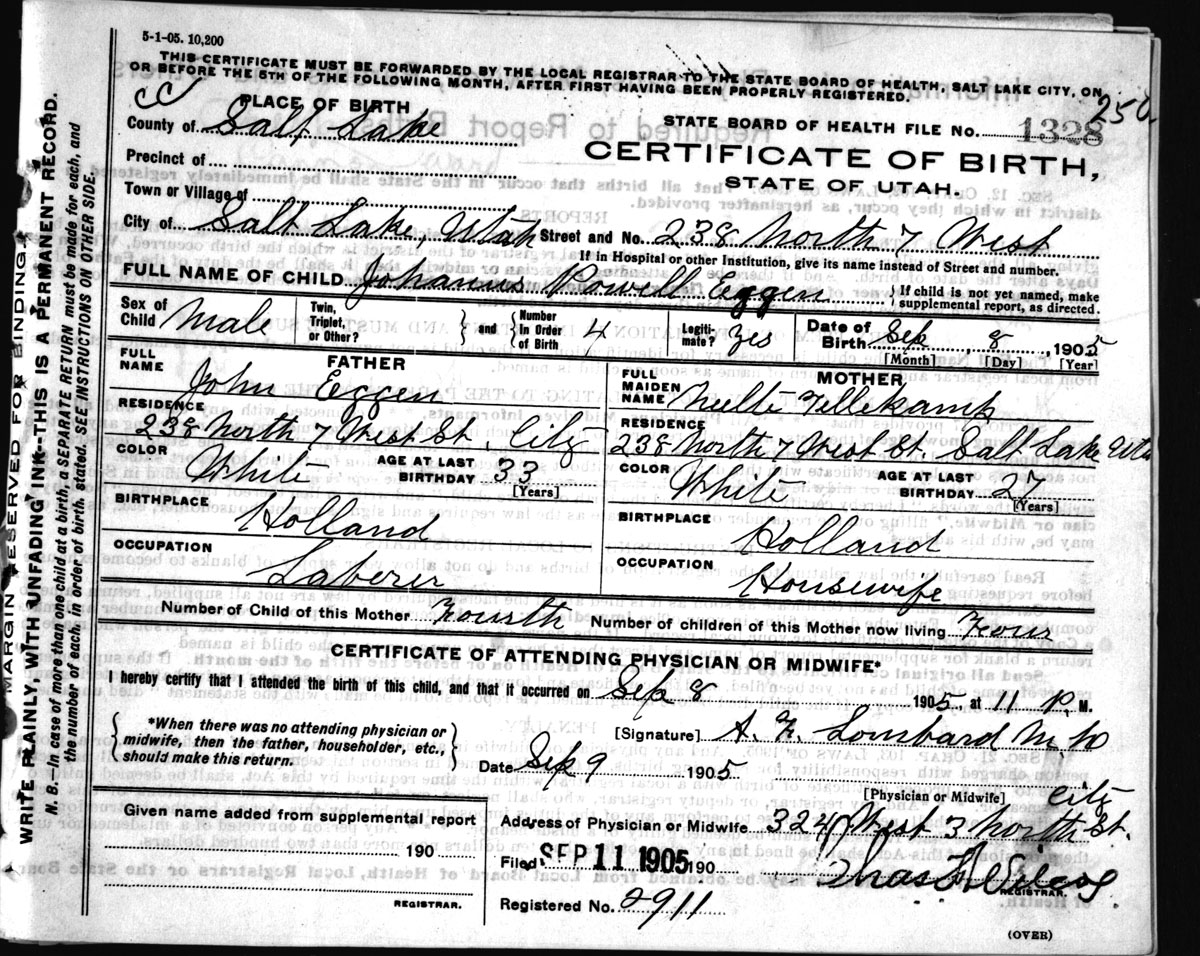 5-1-05. 10,200
THIS CERTIFICATE MUST BE FORWARDED BY THE LOCAL REGISTRAR TO THE STATE BOARD OF HEALTH, SALT LAKE CITY, ON
OR BEFORE THE 5TH OF THE FOLLOWING MONTH, AFTER FIRST HAVING BEEN PROPERLY REGISTERED.
250
PLACE OF BIRTH
STATE BOARD OF HEALTH FILE No. 1328
County of Salt Lake
CERTIFICATE OF BIRTH,
Precinct of
STATE OF UTAH.
Town or Village of
City of Salt Lake, Utah Street and No. 238 North 7 West
If in Hospital or other Institution, give its name instead of Street and number.
FULL NAME OF CHILD Johannus Powell Eggen { If child is not yet named, make supplemental report, as directed.
Sex of Child Male Twin, Triplet, or Other? } and { Number in Order of Birth 4 Legitimate? Yes Date of Birth Sep, 8, 1905
[Month] [Day] [Year]
FATHER
FULL NAME John Eggen
RESIDENCE
238 North 7 West St. City
COLOR White AGE AT LAST BIRTHDAY 33
[Years]
BIRTHPLACE
Holland
OCCUPATION
Laberer
MOTHER
FULL MAIDEN NAME Nellte Tellekamp
RESIDENCE
238 North 7 West St. Salt Lake
COLOR White AGE AT LAST BIRTHDAY 27
[Years]
BIRTHPLACE
Holland
OCCUPATION
Housewife
Number of Child of this Mother Fourth Number of children of this Mother now living Four
CERTIFICATE OF ATTENDING PHYSICIAN OR MIDWIFE*
I hereby certify that I attended the birth of this child, and that it occurred on Sep 8 1905, at 11 P. M.
{ *When there was no attending physician or
midwife, then the father, householder, etc.,
should make this return. }
[Signature] A. F. Lombard M D
Date Sep 9 1905
[Physician or Midwife] City
Address of Physician or Midwife 324 West 3 North St.
Given name added from supplemental report
190
REGISTRAR.
Filed SEP 11 1905 190
REGISTRAR.
Registered No. 2911
(OVER)
MARGIN RESERVED FOR BINDING.
WRITE PLAINLY, WITH UNFADING INK--THIS IS A PERMANENT RECORD.
N. B.--In case of more than one child at a birth, a SEPARATE RETURN must be made for each, and
the number of each, in order of birth, stated. SEE INSTRUCTIONS ON OTHER SIDE.